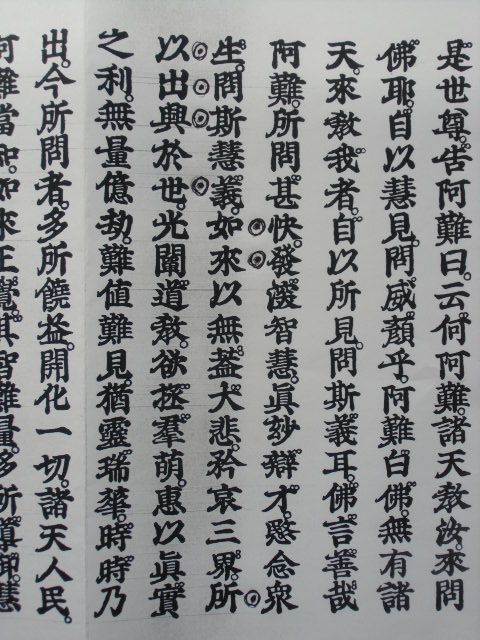 是世尊告阿難曰云何阿難諸天教汝來問
佛耶自以慧見問威顏乎阿難白佛無有諸
天來教我者自以所見問斯義耳佛言善哉
阿難所問甚快發深智慧眞妙辯才愍念衆
生問斯慧義如來以無蓋大悲矜哀三界所
以出興於世光闡道教欲拯羣萌惠以眞實
之利無量億劫難値難見猶靈瑞華時時乃
出今所問者多所饒益開化一切諸天人民
阿難當知如來正覺其智難量多所導御慧